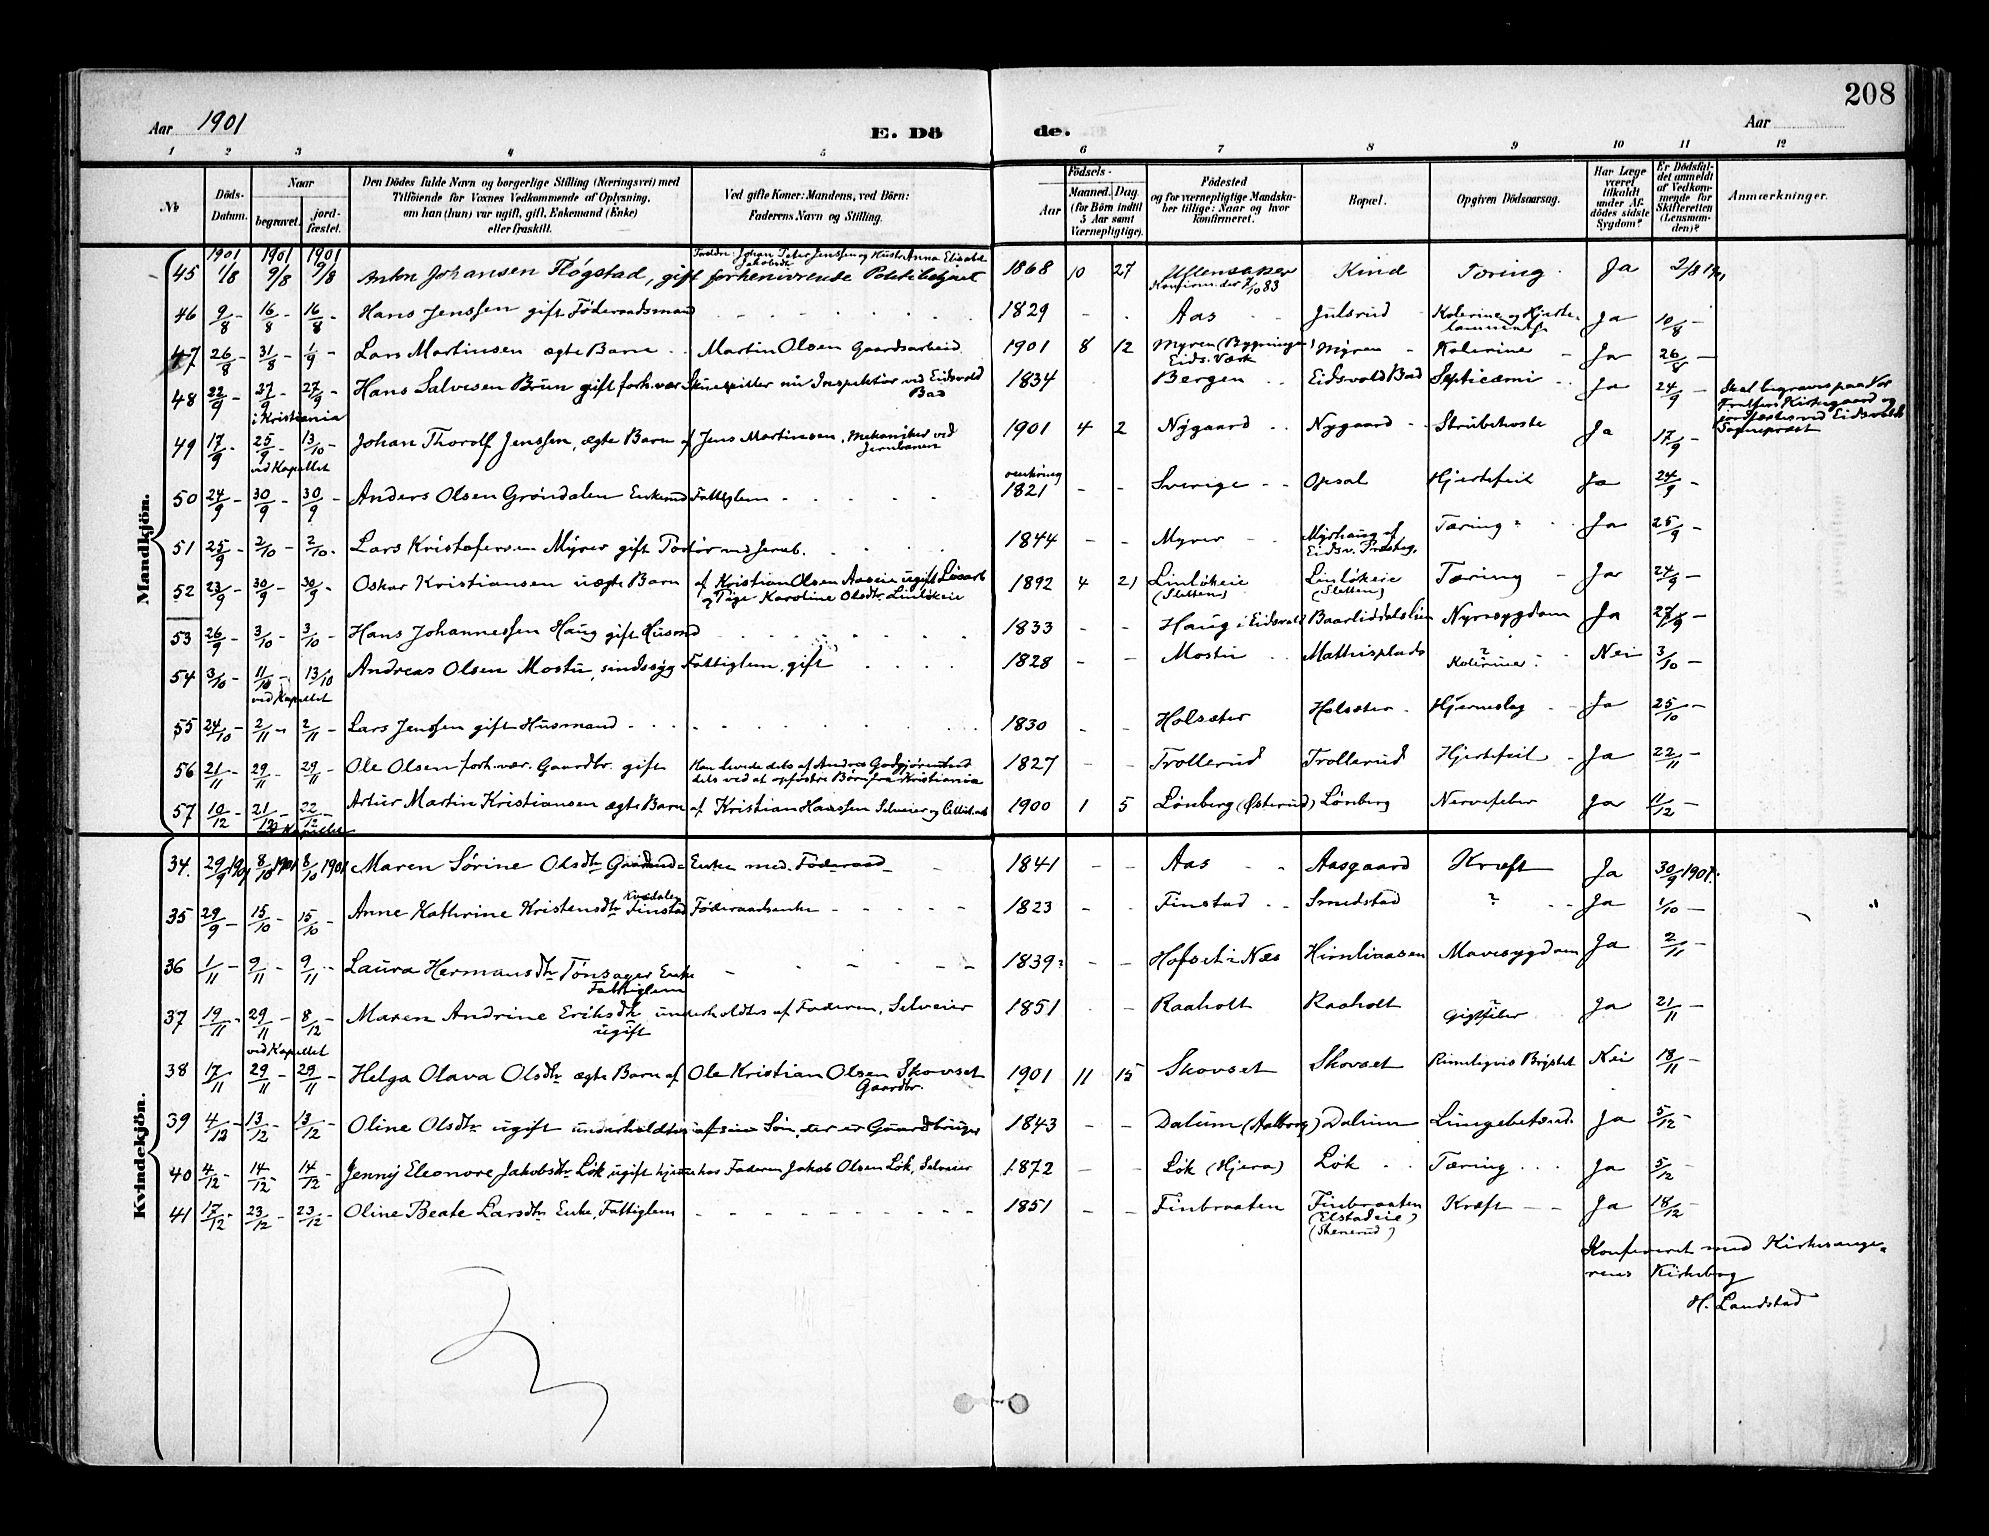 208
Aar 1901
E. Dö
de.
Aar
1 2 3 4 5 6 7 8 9 10 11 12
No
Döds-Datum.
Naar
begravet.
jord-fæstet.
Den Dödes fulde Navn og borgerlige Stilling (Næringsvei) med
Tilföiende for Voxnes Vedkommende af Oplysning,
om han (hun) var ugift, gift, Enkemand (Enke)
eller fraskilt.
Ved gifte Koner: Mandens, ved Börn:
Faderens Navn og Stilling.
Födsels-
Aar
Maaned. Dag.
(for Börn indtil
5 Aar samt
Værnepligtige).
Födested
og for værnepligtige Mandska-
ber tillige: Naar og hvor
konfirmeret.
Bopæl.
Opgiven Dödsaarsag.
Har Læge
været
tilkaldt
under Af-
dödes sidste
Sygdom?
Er Dödsfal-
det anmeldt
af Vedkom-
mende for
Skifteretten
(Lensman-
den)?
Anmærkninger.
Mandkjön.
1901 1901 1901
Forældre: Johan Peter Jenssen og Hustr. Anna Elisabet Jakobsdtr
45 1/8 9/8 9/8 Anton Johansen Flógstad, gift 1868 10 27 Ullensaker Kind Tæring Ja 2/8 1901
46 9/8 - 16/8 - 16/8 - Hans Jenssen gift Föderaadsmand 1829 - Aas Julsrud Kolerine og Hjerte- Ja 10/8 -
47 26/8 - 31/8 - 1/9 - Lars Martinsen ægte Barn Martin Olsen Gaardsarbeid. 1901 8 12 Myren (Bygningen) Eids. Værk Myren Kolerine Ja 26/8 -
48 22/9 - 27/9 - 27/9 - Hans Salvesen Brun gift forh.vær. Skuespiller nu Inspektör ved Eidsvold Bad 1834 Bergen Eidsvold Bad Septicæmi Ja 24/9 - Skal begraves paa Vor
Frelsers Kirkegaard og
jordfæstes ved Eidsvolds
Sognepræst
i Kristiania
49 17/9 - 25/9 - 13/10 - Johan Thorolf Jenssen, ægte Barn af Jens Martinsen, Mekaniker ved Jernbanen 1901 4 2 Nygaard Nygaard Strubehoste Ja 17/9 -
ved Kapellet
50 24/9 - 30/9 - 30/9 - Anders Olsen Gröndalen Enkemd Fattiglem omkring 1821 - - Sverige Opsal Hjertefeil Ja 24/9 -
51 25/9 - 2/10 - 2/10 - Lars Kristofersen Myrer gift ved Jernb. 1844 - - Myrer Myrhaug af Eidsv. Præsteg. Tæring ? Ja 25/9 -
52 23/9 - 30/9 - 30/9 - Oskar Kristiansen uægte Barn af Kristian Olsen Aaseie ugift Lösarb og Pige Karoline Olsdtr. Linlökeie 1892 4 21 Linlökeie (Sletten) Linlökeie (Sletten) Tæring - Ja 24/9 -
53 26/9 - 3/10 - 3/10 - Hans Johannessen Haug gift Husmd 1833 - - Haug i Eidsvold Baarliddalslien Nyresygdom Ja 27/9 -
54 3/10 - 11/10 - 13/10 Andreas Olsen Mostu, sindssyg Fattiglem, gift 1828 - - Mostu Mathisplads Kolerine? Nei 3/10 -
ved Kapellet
55 24/10 - 2/11 - 2/11 - Lars Jenssen gift Husmand 1830 - - Holsæter Holsæter Hjerneslag Ja 25/10 -
56 21/11 - 29/11 - 29/11 - Ole Olsen forh. vær. Gaardbr. gift Han levede dels af Andres Godgjörenhed dels ved at opfostre Börn fra Kristiania 1827 - - Trollerud Trollerud Hjertefeil - Ja 22/11 -
57 10/12 - 21/12 - 22/12 - Artur Martin Kristiansen ægte Barn af Kristian Hanssen Selveier og 1900 1 5 Lönberg (Österud) Lönberg Nervefeber Ja 11/12 -
v. Kapellet
Kvindekjön.
34. 29/9 1901 8/10 1901 8/10 1901 Maren Sörine Olsdtr Enke med Föderaad 1841 - - Aas Aasgaard Kræft Ja 30/9 1901.
35 29/9 - 15/10 - 15/10 - Anne Kathrine Kristensdtr Finstad Föderaadsenke 1823 - - Finstad Smedstad ? Ja 1/10 -
36 1/11 - 9/11 - 9/11 - Laura Hermansdtr Tönsager Enke Fattiglem 1839? - - Hofset i Næs Himliaasen Mavesygdom Ja 2/11 -
37 19/11 - 29/11 - 8/12 - Maren Andrine Eriksdtr ugift underholdtes af Faderen, Selveier 1851 Raaholt Raaholt Gigtfeber ? Ja 21/11 -
ved Kapellet
38 17/11 - 29/11 - 29/11 - Helga Olava Olsdtr ægte Barn af Ole Kristian Olsen Skovset Gaardbr. 1901 11 15 Skovset Skovset Rimeligvis Brystet Nei 18/11 -
39 4/12 - 13/12 - 13/12 - Oline Olsdtr ugift underholdtes af sin Sön, der er Gaardbruger 1843 - - Dalum (Aalborg) Dalum Lungebetænd. Ja 5/12 -
40 4/12 - 14/12 - 14/12 - Jenny Eleonore Jakobsdtr Lök ugift hjemme hos Faderen Jakob Olsen Lök, Selveier 1872 - - Lök (Hjera) Lök Tæring Ja 5/12 -
41 17/12 - 23/12 - 23/12 - Oline Beate Larsdtr Enke, Fattiglem 1851 - - Finbraaten Finbraaten (Elstadeie) (Stenerud) Kræft - - Ja 18/12 -
Konfereret med Kirkesange-
rens Kirkebog
H. Landstad